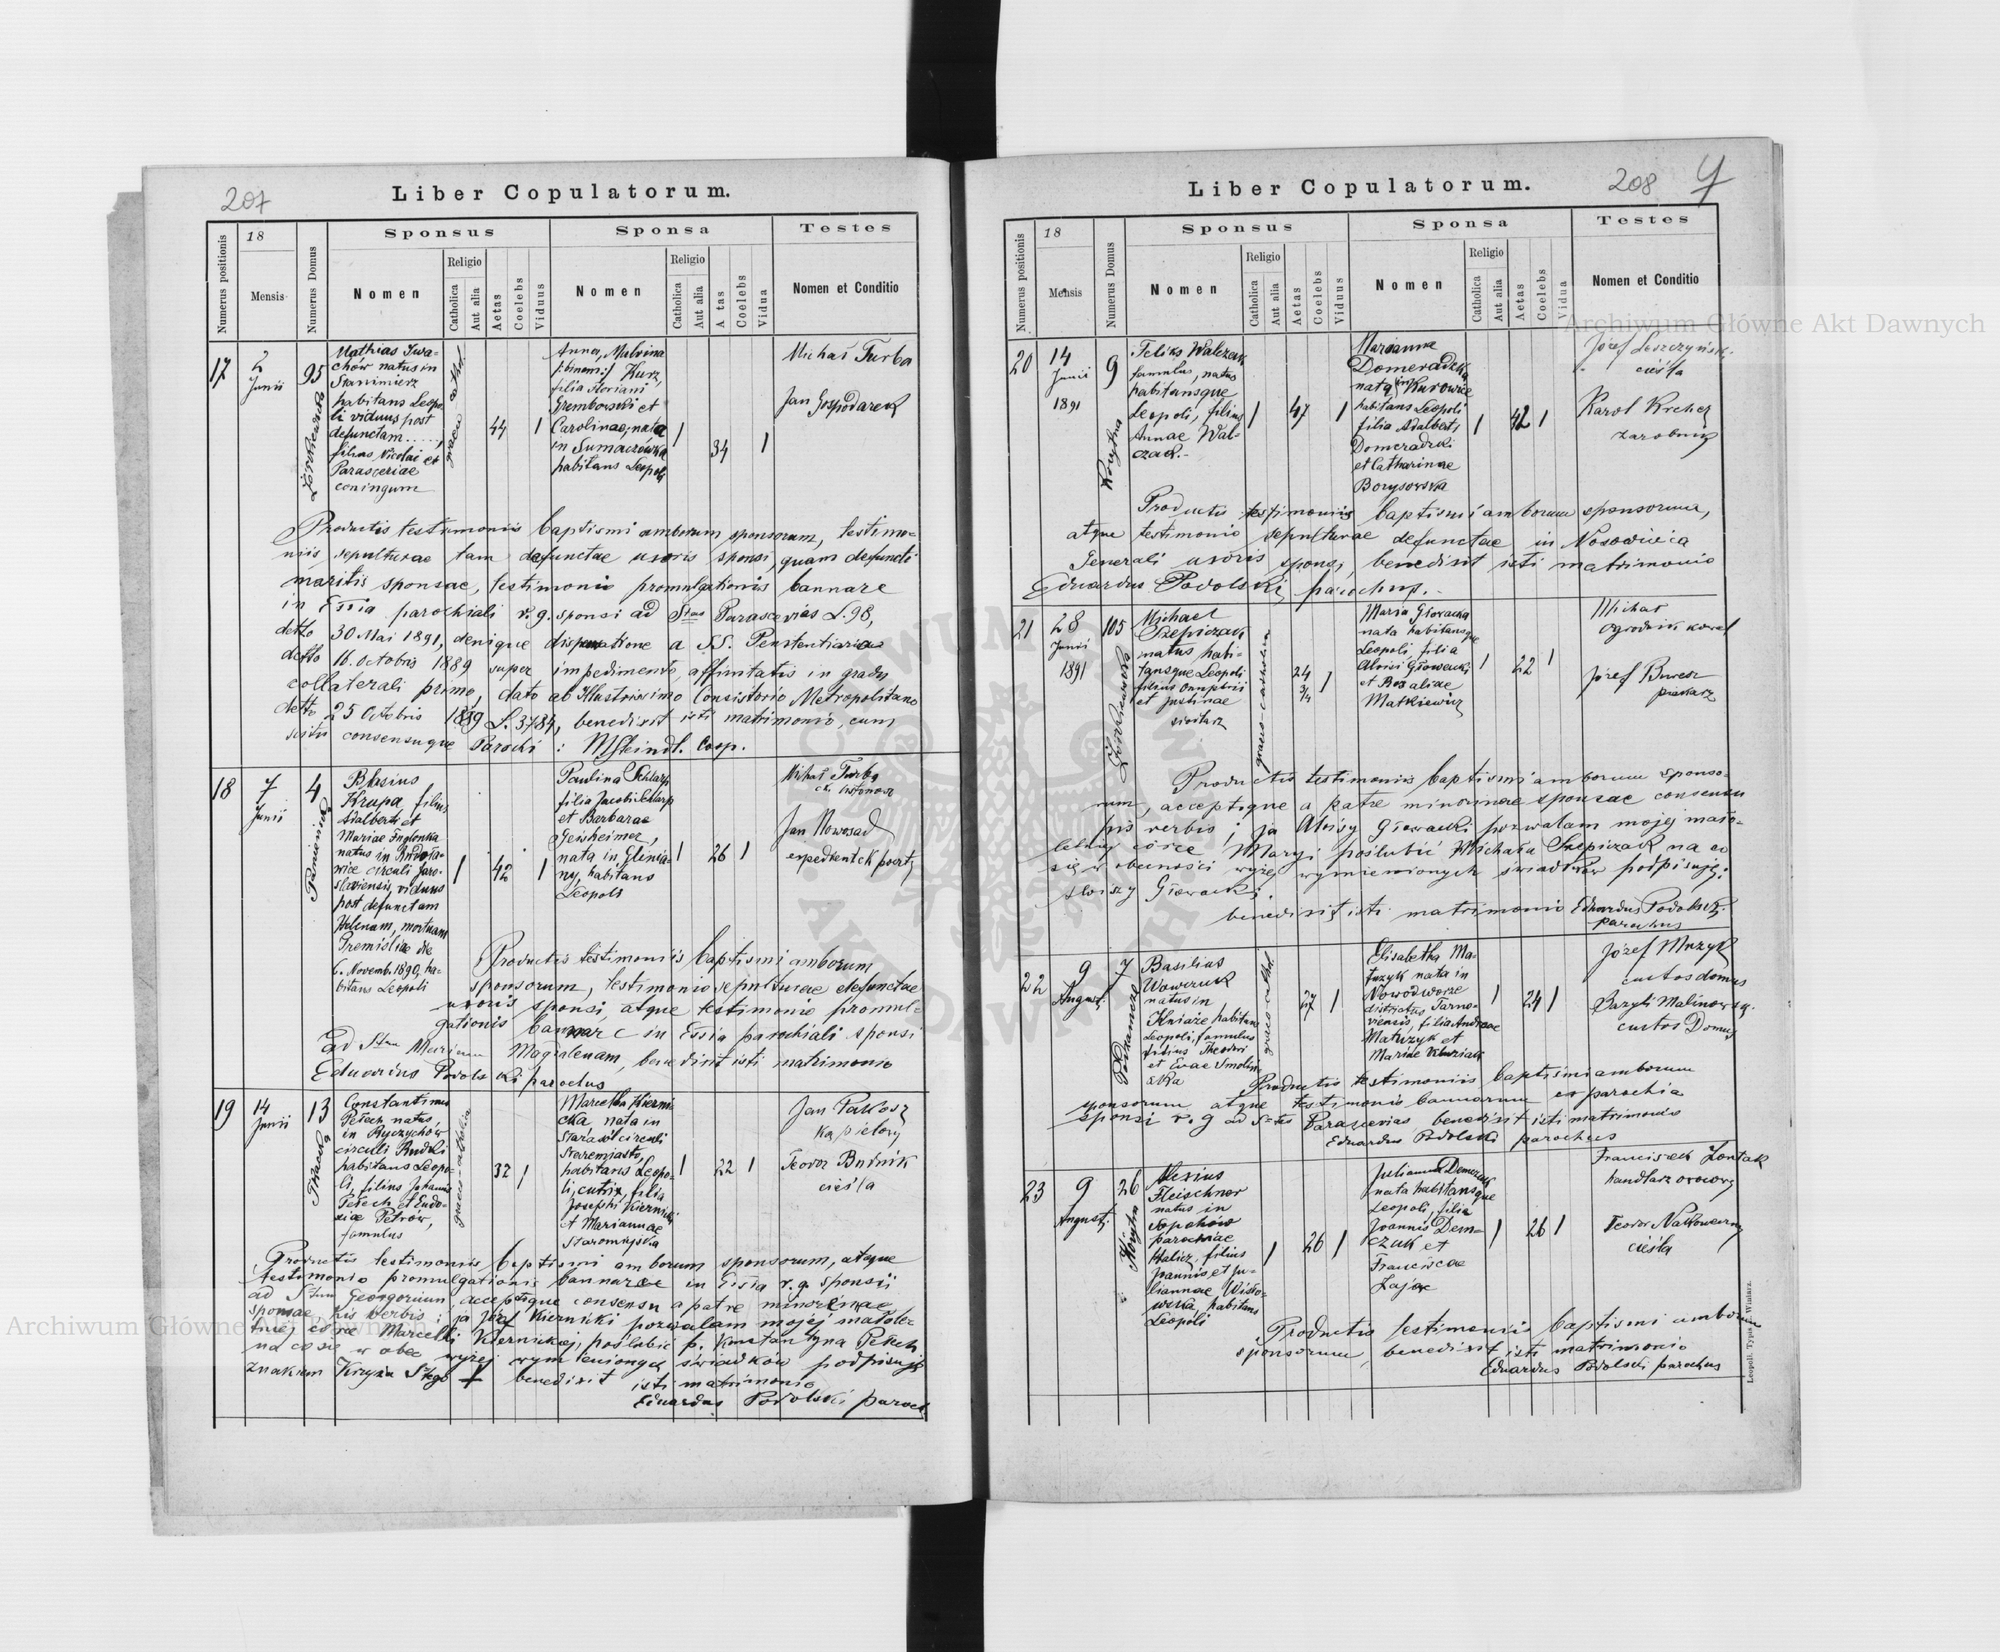 207
Liber Copulatorum.
Numerus positionis
18
Mensis
Numerus Domus
Sponsus
Nomen
Religio
Catholica
Aut alia
Aetas
Coelebs
Viduus
Sponsa
Nomen
Religio
Catholica
Aut alia
A tas
Coelebs
Vidua
Testes
Nomen et Conditio
17
2
Junii
95
Mathias Iwa-
chów natus in
Stanimierz
habitans Leopo-
li viduus post
defunctam .....,
filius Nicolai et
Parasceviae
coniugum
graeco cathol.
44
1
Anna, Malvina
/:binom:/ Kurz,
filia Floriani
Grembowski et
Carolinae, nata
in Tumaczówka
habitans Leopoli
1
34
1
Michał Turba
Jan Gospodarek
Productis testimoniis baptismi amborum sponsorum, testimo-
niis sepulturae tam defunctae uxoris sponsi, quam defuncti
maritis sponsae, testimonio promulgationis bannare
in Essia parochiali r. g. sponsi ad Stae Parascevias L. 98,
detto 30 Mai 1891, denique dispensatione a SS. Penitentiariae
detto 16. Octobris 1889 super impedimento affinitatis in gradu
collaterali primo, dato ab Illustrissimo Consistorio Metropolitano
detto 25 Octobris 1889 L. 3784, benedixit isti matrimonio, cum
scitu consensuque Parochi : Coop.
18
7
Junii
4
Blasius
Krupa, filius
Adalberti et
Mariae
natus in
circuli Jaro-
slaviensis, viduus
post defunctam
Helenam, mortuam
die
6. Novemb. 1890, ha-
bitans Leopoli
1
42
1
Paulina Schlarp
filia Jacobi Schlarp
et Barbarae
Geisheimer,
nata in Glinia-
ny, habitans
Leopoli
1
26
1
Michał Turba
Jan Nowosad
Productis testimoniis baptismi amborum
sponsorum, testimonio sepulturae defunctae
uxoris sponsi, atque testimonio promul-
gationis bannare in Essia parochiali sponsi
ad Stam Mariam Magdalenam, benedixit isti matrimonio
Eduardus Podolski parochus
19
14
Junii
13
Constantinus
Petech, natus
in Ryczychów
circuli Rudki
habitans Leopo-
li, filius Johannis
Petech et Eudo-
xiae Petrów,
famulus
32
1
Marcella Kierni-
cka, nata in
Starasól circuli
Staremiasto,
habitans Leopo-
li, filia
Josephi Kiernicki
et Mariannae
Staromiejska
1
22
1
Teodor Budnik
cieśla
Productis testimoniis baptismi amborum sponsorum, atque
testimonio promulgationis bannare in Essia r. g. sponsi
ad Stum Georgorium, acceptoque consensu a patre minorennae
sponsae his verbis: ja Józef Kiernicki pozwalam mojej małole-
tniej córce Marcelli Kiernickiej, poślubić p. Konstantyna Petech
na co się w obec wyżej wymienionych świadków podpisuję
znakiem Krzyża Stego + benedixit isti matrimonio
Eduardus Podolski paroch
208
Liber Copulatorum.
Numerus positionis
18
Mensis
Numerus Domus
Sponsus
Nomen
Religio
Catholica
Aut alia
Aetas
Coelebs
Viduus
Sponsa
Nomen
Religio
Catholica
Aut alia
Aetas
Coelebs
Vidua
Testes
Nomen et Conditio
20
14
Junii
1891
9
Feliks Walczak
famulus, natus
habitansque
Leopoli, filius
Annae Wal-
czak.-
1
47
1
Marianna
Domeradzka
nata in Kurowice
habitans Leopoli
filia Adalberti
Domeradzki
et Catharinae
Borysowska
1
42
1
Józef Leszczyński
cieśla
Karol Krehcz
zarobnik
Productis testimoniis baptismi amborum sponsorum,
atque testimonio sepulturae defunctae in
Generali uxoris sponsi, benedixit isti matrimonio
Eduardus Podolski, parochus.-
21
28
Junii
1891
105
Michael
Szepiczak
natus habi-
tansque Leopoli
filius Onuphrii
et Justinae
graeco-catholica
24
3/4
1
Maria Głowacka
nata habitansque
Leopoli, filia
Aloisi Głowacki
et Rozaliae
Matkiewicz
1
22
1
Michał
Józef
piekarz
Productis testimoniis baptismi amborum sponso-
rum, acceptoque a patre minorinae sponsae consensu
his verbis; ja Aloisy Głowacki pozwalam mojej mało-
letniej córce Maryi poślubić Michała Szepiczak na co
się w obecności wyżej wymienionych świadków podpisuję:
Aloiszy Głowacki
benedixit isti matrimonio Eduardus Podolski
parochus
22
9
August.
7
Basilius
Wawczuk
natus in
Kniaże habitans
Leopoli, famulus
filius Theodori
et Evae Smoliń-
ska
graeco cathol.
27
1
Elisabetha Ma-
tuzyk nata in
Nowodworze
districtus Tarno-
viensis, filia Andreae
Matuzyk et
Mariae
1
24
1
Józef Muzyk
custos domus
Bazyli Malinowski.
custos Domus
Productis testimoniis baptismi amborum
sponsorum atque testimonio bannorum ex parochia
sponsi r. g ad Stes Parascevias, benedixit isti matrimonio
Eduardus Podolski parochus
23
9
Augusti
26
Alexius
Fleischner
natus in
Sapohów
parochiae
Halicz, filius
Joannis et Ju-
liannae Wisło-
wska, habitans
Leopoli
1
26
1
Julianna Demczak
nata habitansque
Leopoli, filia
Joannis Dem-
czuk et
Franciscae
Zając
1
26
1
Franciszek Zontak
handlarz owocowy
Teodor
cieśla
Productis testimoniis baptismi amborum
sponsorum, benedixit isti matrimonio
Eduardus Podolski parochus
Leopoli. Typis Winiarz.
Archiwum Główne Akt Dawnych
Archiwum Główne Akt Dawnych